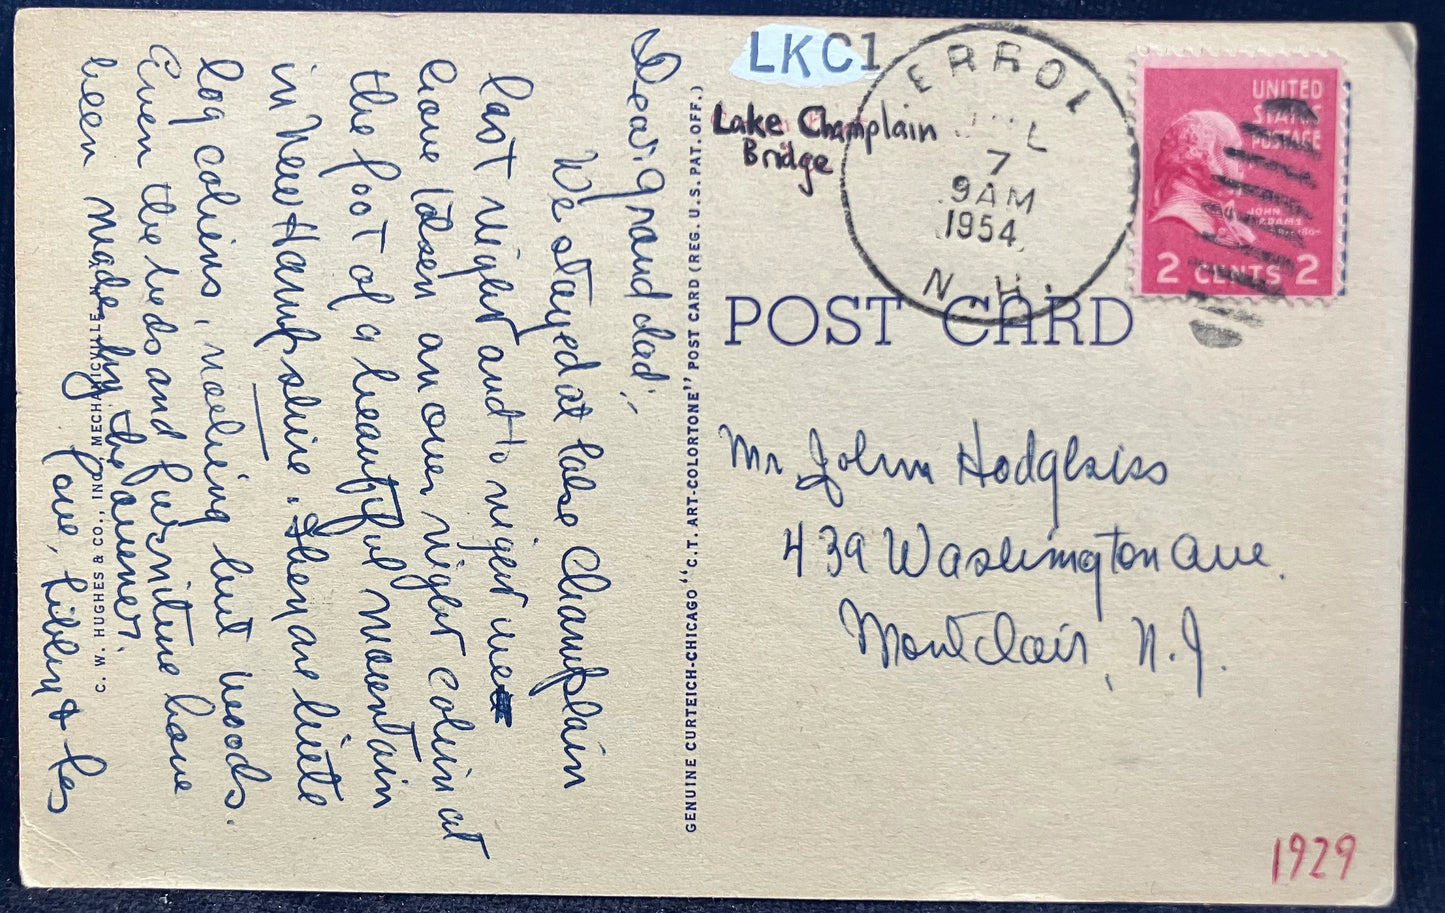 Dear Granddad,
We stayed at Lake Champlain
last night and to night we
have taken an over night cabin at
the foot of a beautiful mountain
in New Hampshire. They are little
log cabins, nothing but woods.
Even the beds and furniture have
been made by the owner.
Love, Libby & Les
C. W. HUGHES & CO., INC. MECHANICVILLE, N.Y.
GENUINE CURTEICH-CHICAGO "C.T. ART-COLORTONE" POST CARD (REG. U.S. PAT. OFF.)
LKC1
Lake Champlain
Bridge
ERROL
JUL
7
9AM
1954
N.H.
UNITED
STATES
POSTAGE
JOHN
ADAMS
2 CENTS 2
POST CARD
Mr John Hodgkiss
439 Washington Ave.
Montclair, N.J.
1929